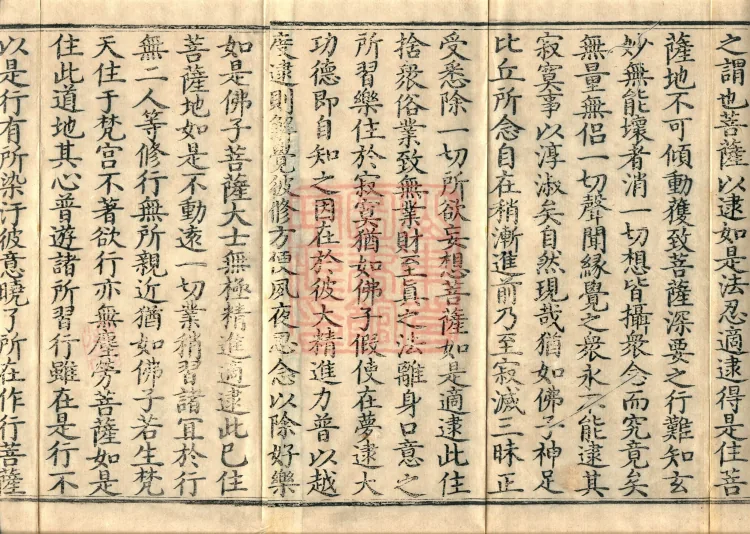 之謂也菩薩以逮如是法忍適逮得是住菩
薩地不可傾動獲致菩薩深要之行難知玄
妙無能壞者消一切想皆攝衆念而究竟矣
無量無侣一切聲聞緣覺之衆永不能逮其
寂寞事以淳淑矣自然現哉猶如佛子神足
比丘所念自在稍漸進前乃至寂滅三昧正
受悉除一切所欲妄想菩薩如是適逮此住
捨衆俗業致無業財至真之法離身口意之
所習樂住於寂寞猶如佛子假使在夢逮大
功德即自知之因在於彼大精進力普以越
度逮則解覺彼修方便夙夜思念以除好樂
如是佛子菩薩大士無極精進適逮此已住
菩薩地如是不動遠一切業稍習諸冝於行
無二人等修行無所親近猶如佛子若生梵
天住于梵宫不著欲行亦無塵勞菩薩如是
住此道地其心普遊諸所習行雖在是行不
以是行有所染汙彼意曉了所在作行菩薩